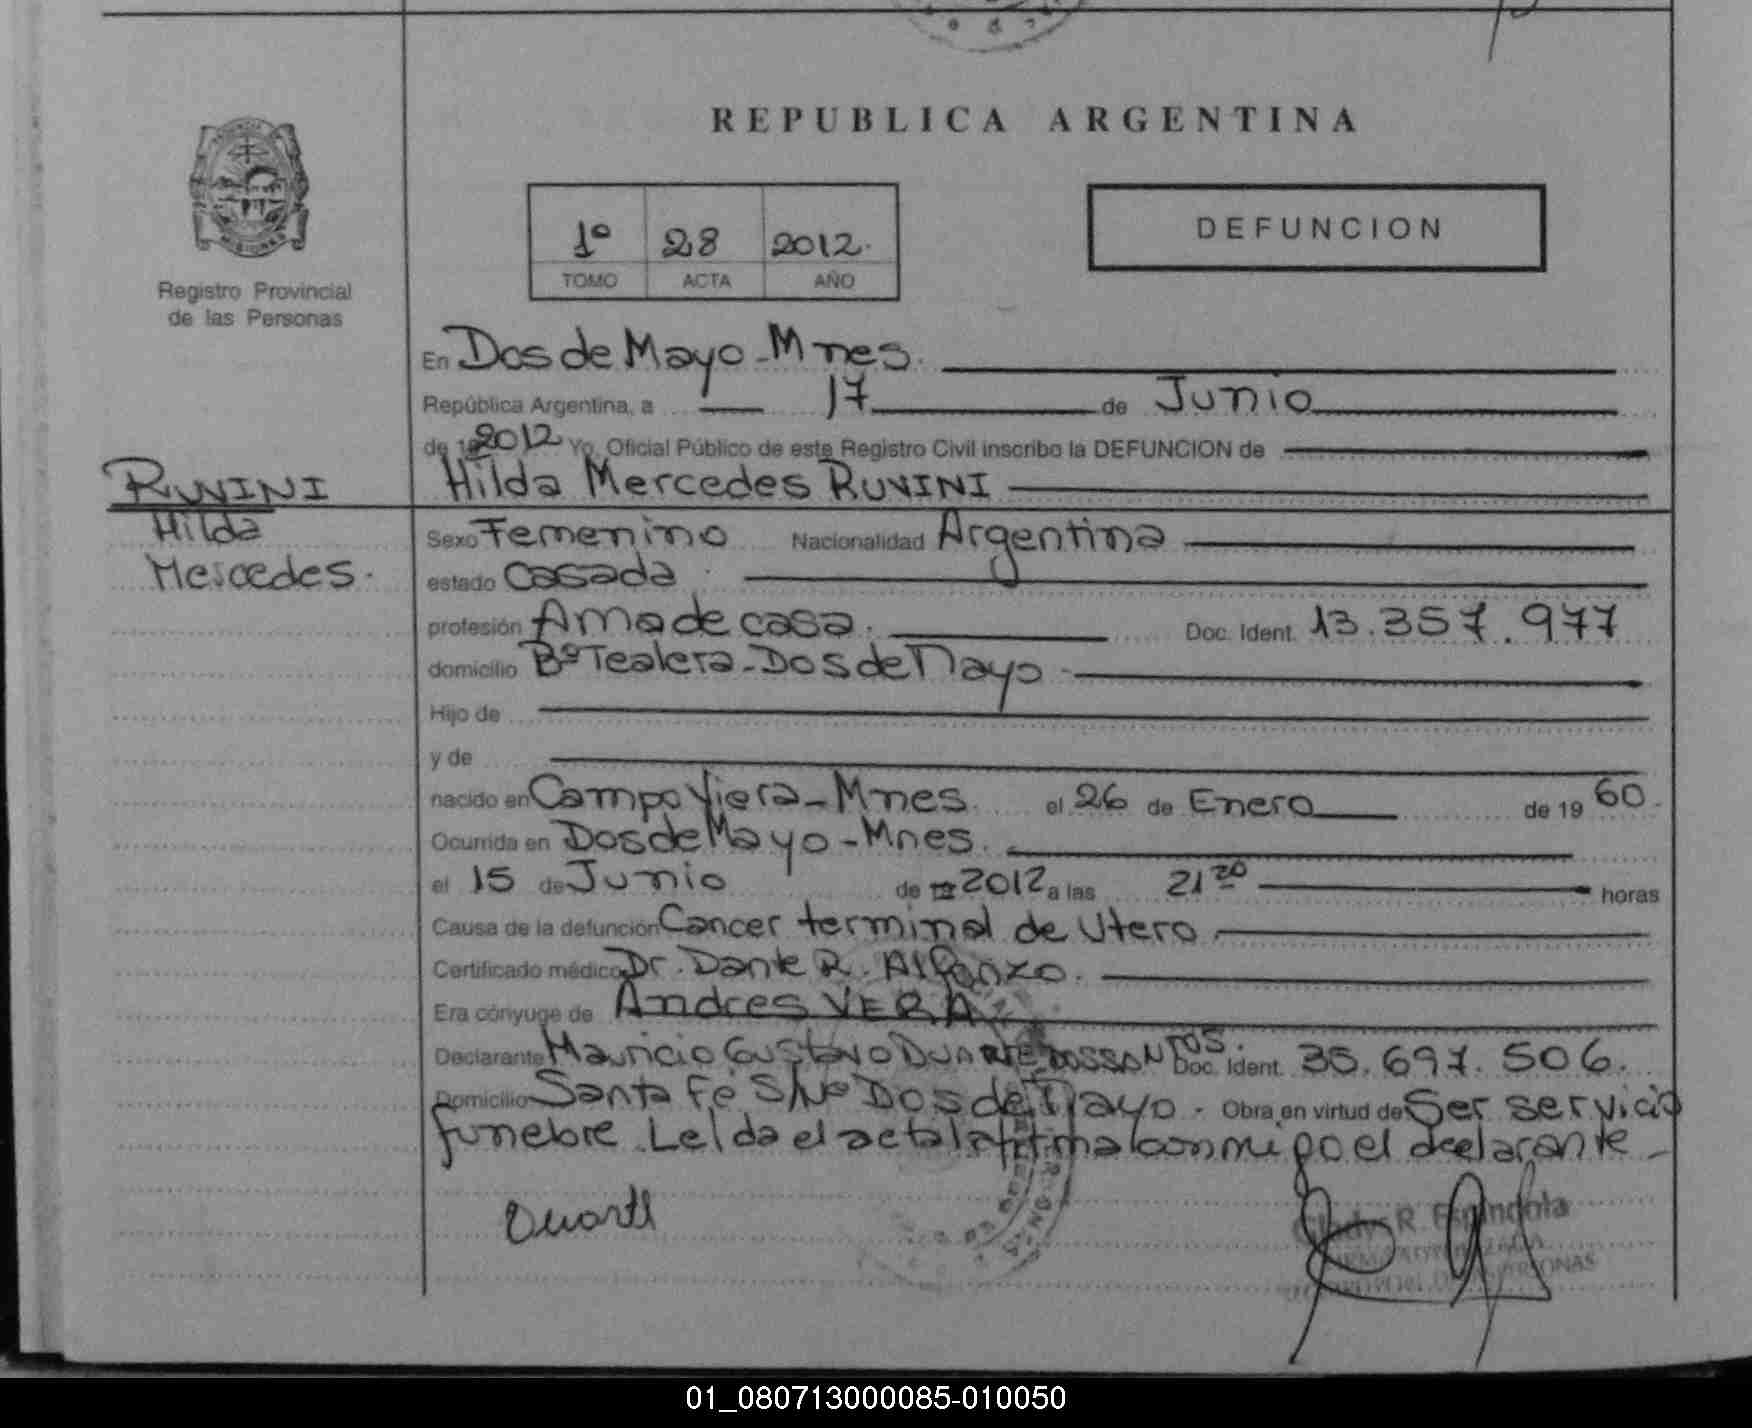 REPUBLICA ARGENTINA
1º 28 2012.
TOMO ACTA AÑO
DEFUNCION
MISIONES
Registro Provincial
de las Personas
En Dos de Mayo - Mnes.
República Argentina, a 17 de Junio
de 19 2012 Yo, Oficial Público de este Registro Civil inscribo la DEFUNCION de
RUVINI
Hilda
Mercedes.
Hilda Mercedes RUVINI
Sexo Femenino Nacionalidad Argentina
estado Casada.
profesión Ama de casa. Doc. Ident. 13.357.977
domicilio Bº Tealera - Dos de Mayo
Hijo de
y de
nacido en Campo Viera - Mnes. el 26 de Enero de 19 60.
Ocurrida en Dos de Mayo - Mnes.
el 15 de Junio de 2012 a las 21 horas
Causa de la defunción Cancer terminal de Utero
Certificado médico Dr. Dante R. Alfonzo.
Era cónyuge de Andres VERA
Declarante Mauricio Gustavo DUARTE DOSSANTOS. Doc. Ident. 35.697.506.
Domicilio Santa Fé S/Nº Dos de Mayo. Obra en virtud de Ser servicio
funebre. Leida el acta la firma conmigo el declarante -
Duarte
Gladys R. Espindola
01_080713000085-010050